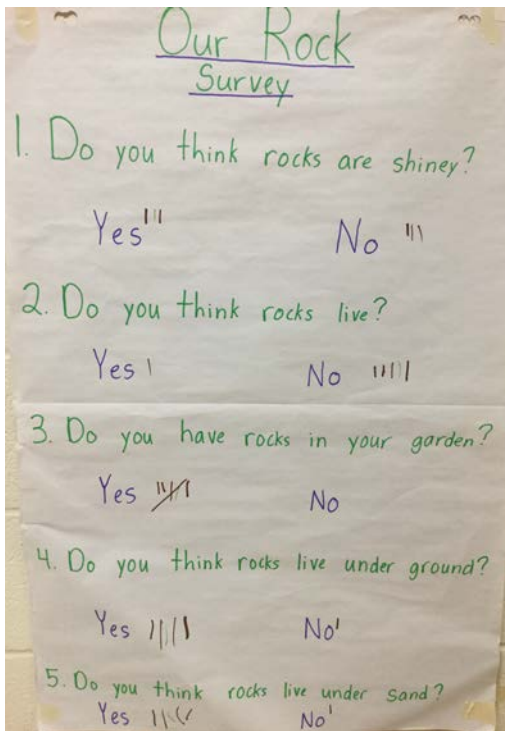 Our Rock
Survey
1. Do you think rocks are shiney?
Yes No
2. Do you think rocks live?
Yes No
3. Do you have rocks in your garden?
Yes No
4. Do you think rocks live under ground?
Yes No
5. Do you think rocks live under sand?
Yes No